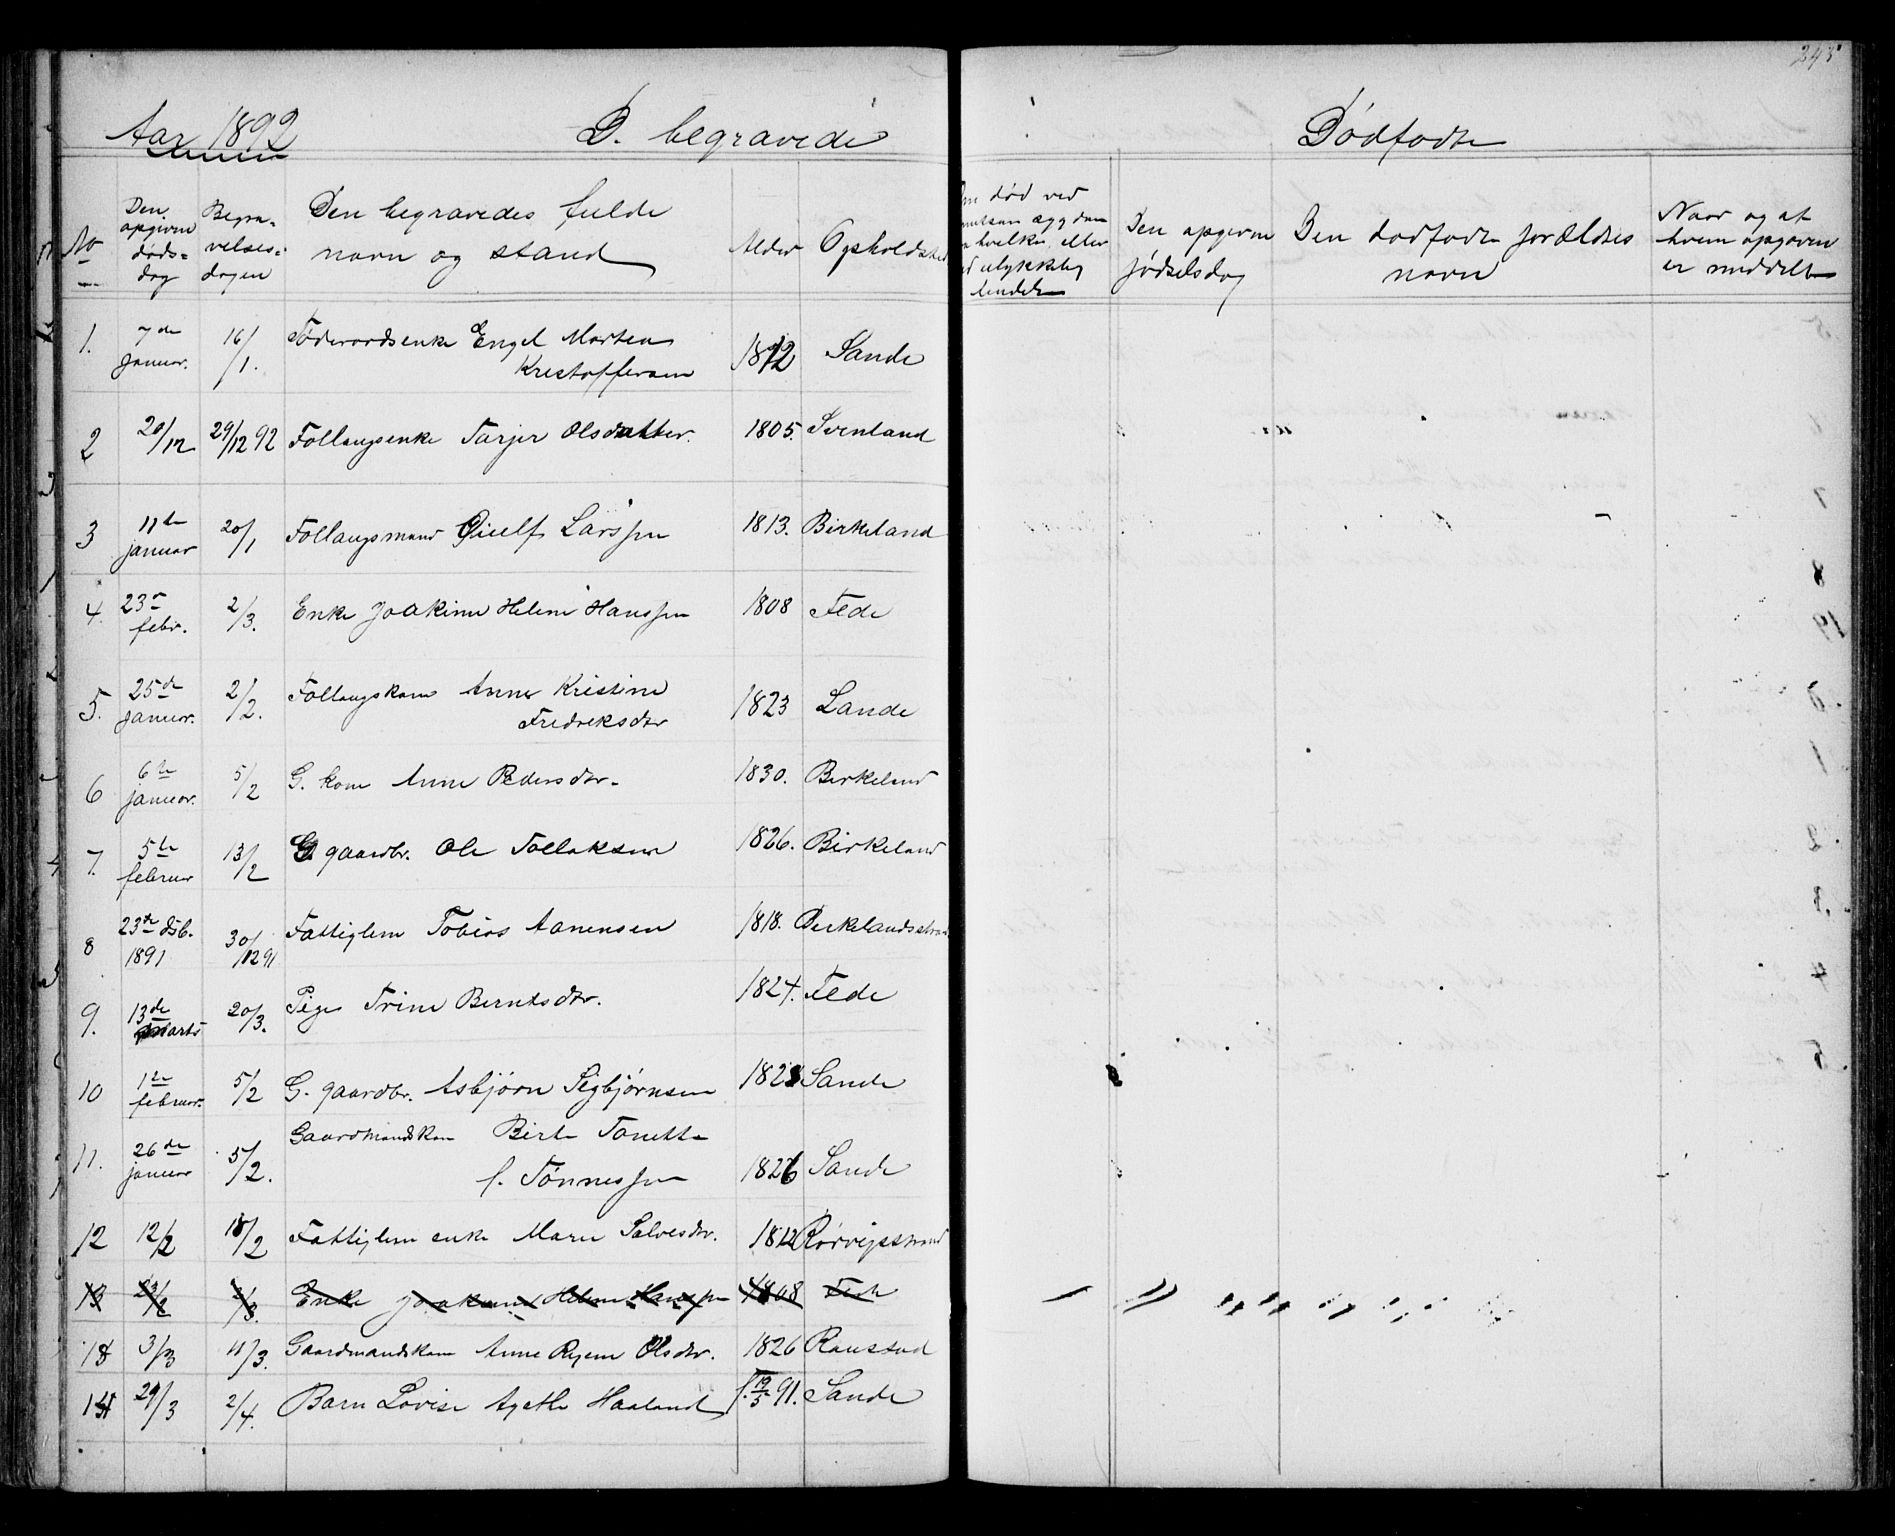 245
Aar 1892
D. begravede
Dødfødte
No
Den opgivne døds-dag
Begra-velses-dagen
Den begravedes fulde navn og stand
Alder
Opholdsted
død ved
eller
ulykkelig
hendelse
Den opgivne fødselsdag
Den dødfødte forældres navn
Naar og at hvem opgaven er meddelt
1. 7de januar. 16/1. Føderaadsenke Engel Martea Kristoffersen 1812 Sande
2 20/12 29/12 92 Follaugsenke Tarjer Olsdatter. 1805. Svenland
3 11te januar 20/1 Follaugsmand Giulf Larssen 1813. Birkeland
4. 23de febr. 2/3. Enke Joakime Helene Hanssen 1808 Fede
5. 25de januar. 2/2. Follaugskone Anne Kristine Fredriksdtr 1823 Sande
6 6te januar. 5/2 G. kone Anne Pedersdtr. 1830. Birkeland
7. 5te februar 13/2 G. gaardbr. Ole Tollaksen 1826. Birkeland
8 23de dsb. 1891 30/12 91 Fattiglem Tobias Aanensen 1818. Birkelandsstrand
9. 13de marts 20/3. Pige Trine Berntsdtr. 1824. Fede
10 1te februar. 5/2 G. gaardbr. Asbjørn Sigbjørnsen 1828 Sande
11. 26de januar 5/2. Gaardmandskone Birte Tonette f. Tønnessen 1826 Sande
12 12/2 18/2 Fattiglem enke Maren Salvesdtr. 1812 Rørvigstrand
13 23/2 2/3. Enke Joakime Helene Hanssen 1808 Fede
13 3/3 11/3. Gaardmandskone Anne Olsdtr. 1826 Raustad
14 29/3 2/4. Barn Lovise Agathe Haaland f. 19/5 91. Sande